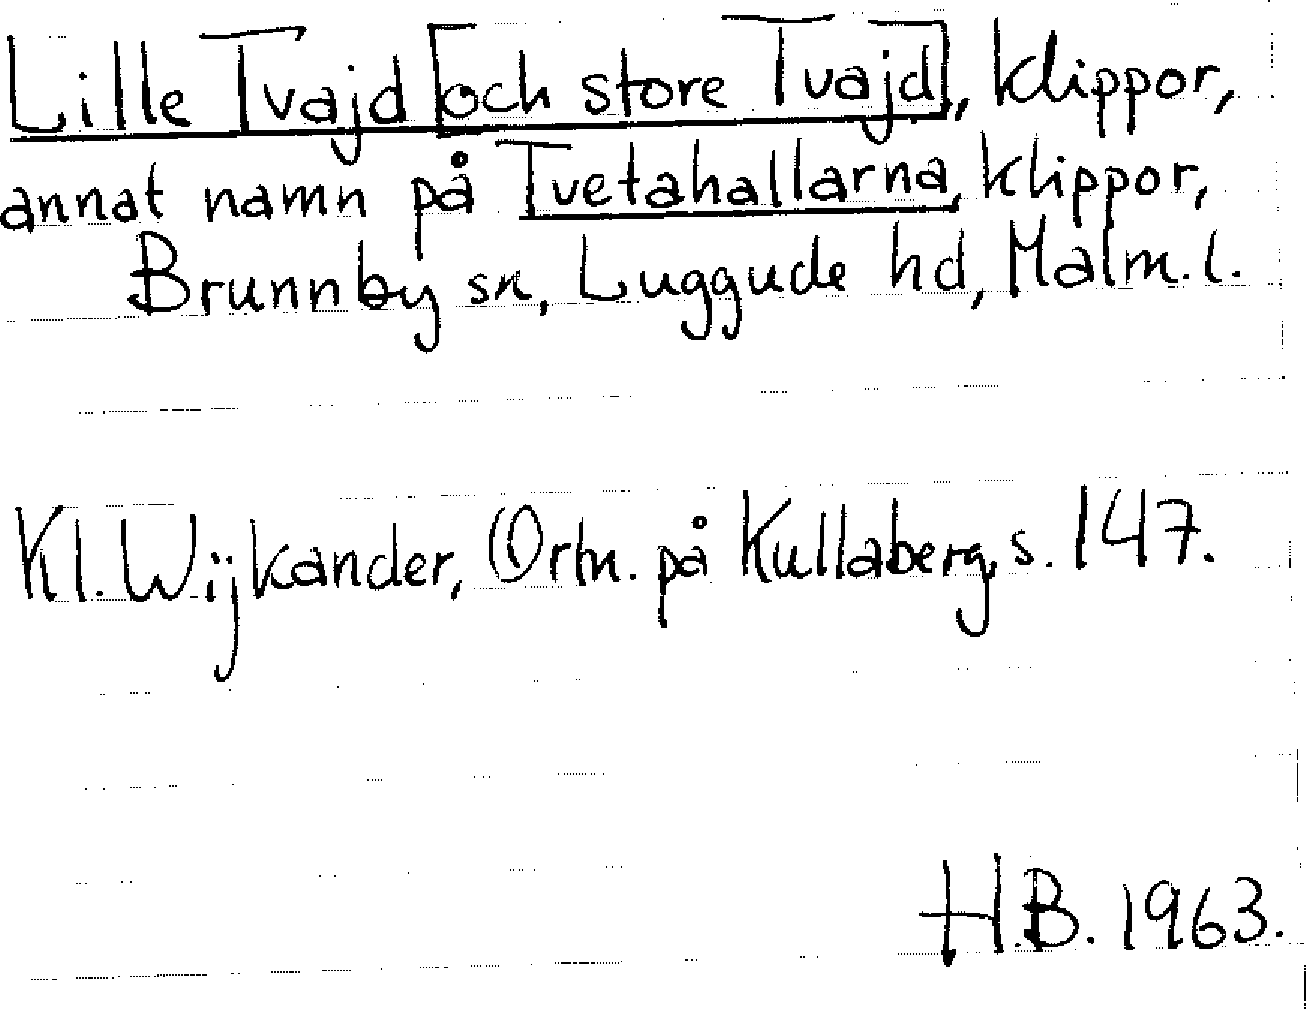 Lille Tvajd [och store Tvajd], klippor,
annat namn på Tvetahallarna, klippor,
Brunnby sn, Luggude hd, Malm. l.
Kl. Wijkander, Ortn. på Kullaberg, s. 147.
H.B. 1963.